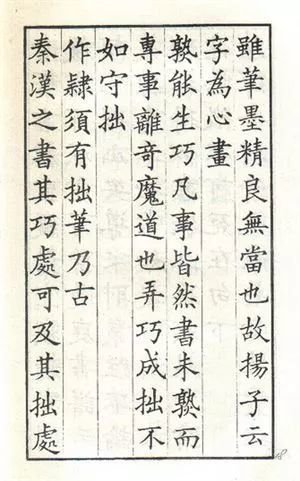 雖筆墨精良無當也故揚子云
字為心畫
孰能生巧凡事皆然書未孰而
專事離奇魔道也弄巧成拙不
如守拙
作隸須有拙筆乃古
秦漢之書其巧處可及其拙處